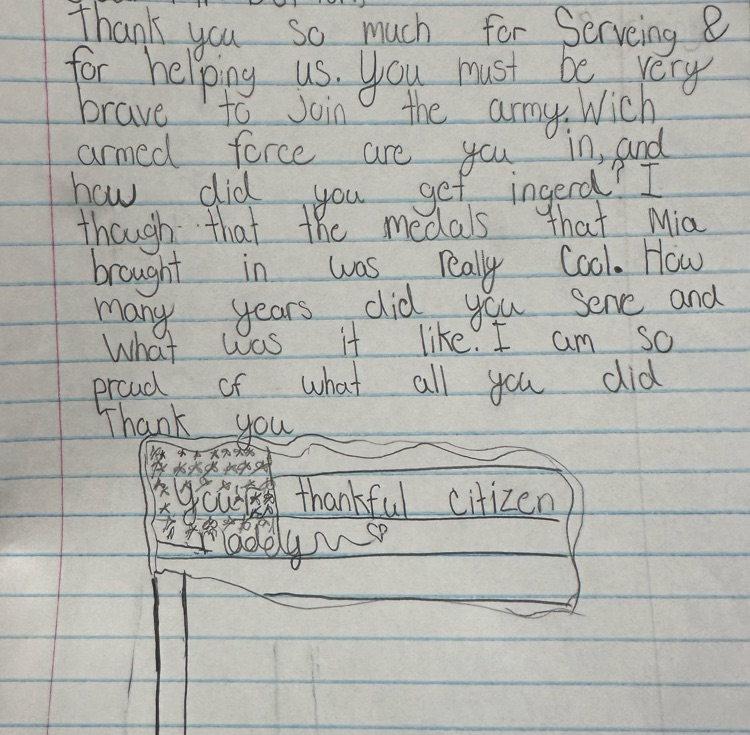 Thank you so much for Serveing &
for helping us. You must be very
brave to join the army. Wich
armed force are you in, and
how did you get ingerd? I
though that the medals that Mia
brought in was really Cool. How
many years did you serve and
What was it like. I am so
proud of what all you did
Thank you
Your thankful citizen